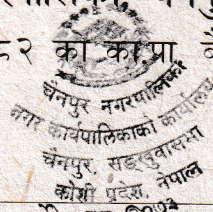 ८२ को का.पा
चैनपुर नगरपालिका
नगर कार्यपालिकाको कार्यालय
चैनपुर, सङ्खुवासभा
कोशी प्रदेश, नेपाल